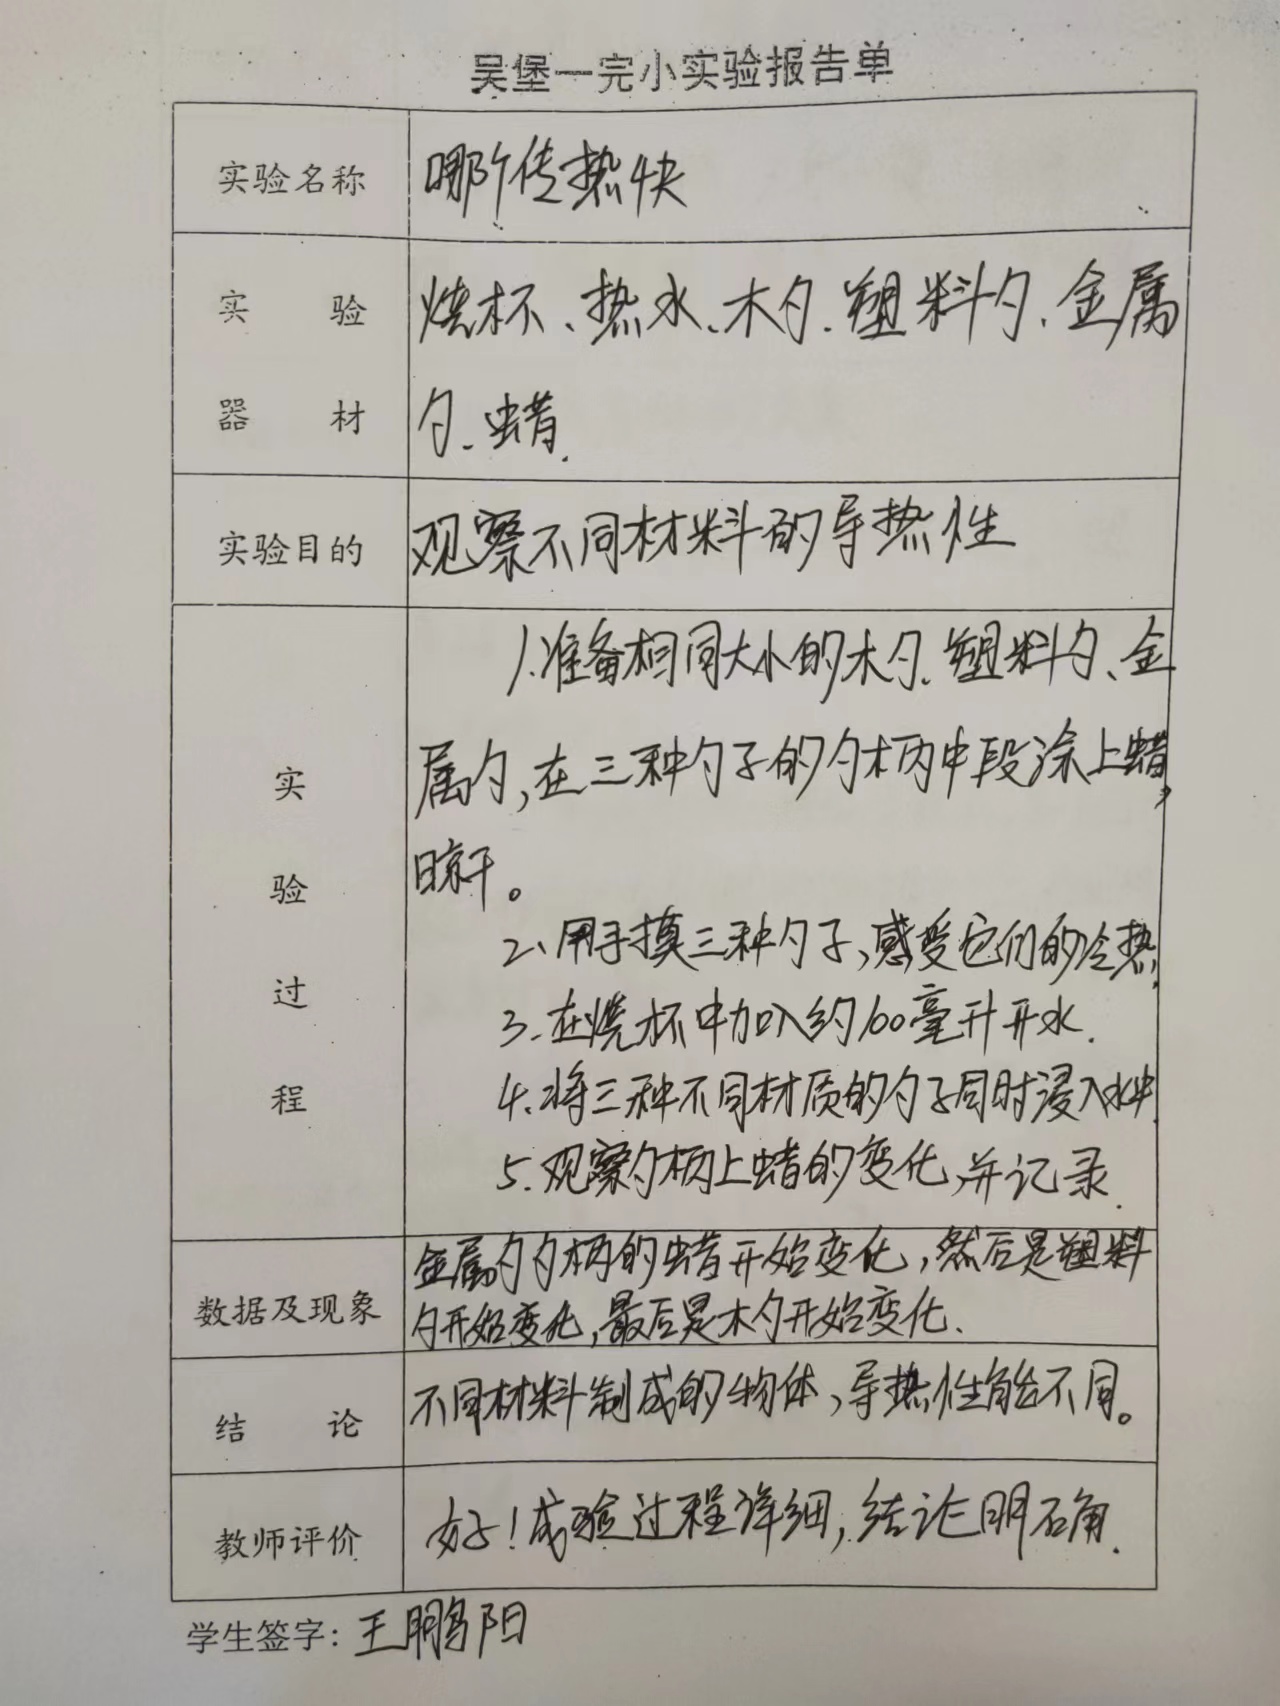 吴堡一完小实验报告单
实验名称
哪个传热快
实验
器材
烧杯、热水、木勺、塑料勺、金属
勺、蜡.
实验目的
观察不同材料的导热性
实
验
过
程
1.准备相同大小的木勺、塑料勺、金
属勺,在三种勺子的勺柄中段涂上蜡,
晾干。
2、用手摸三种勺子,感受它们的冷热.
3.在烧杯中加入约100毫升开水.
4.将三种不同材质的勺子同时浸入水中
5.观察勺柄上蜡的变化,并记录.
数据及现象
金属勺勺柄的蜡开始变化,然后是塑料
勺开始变化,最后是木勺开始变化.
结论
不同材料制成的物体,导热性能不同。
教师评价
好!实验过程详细,结论明确.
学生签字:王鹏阳